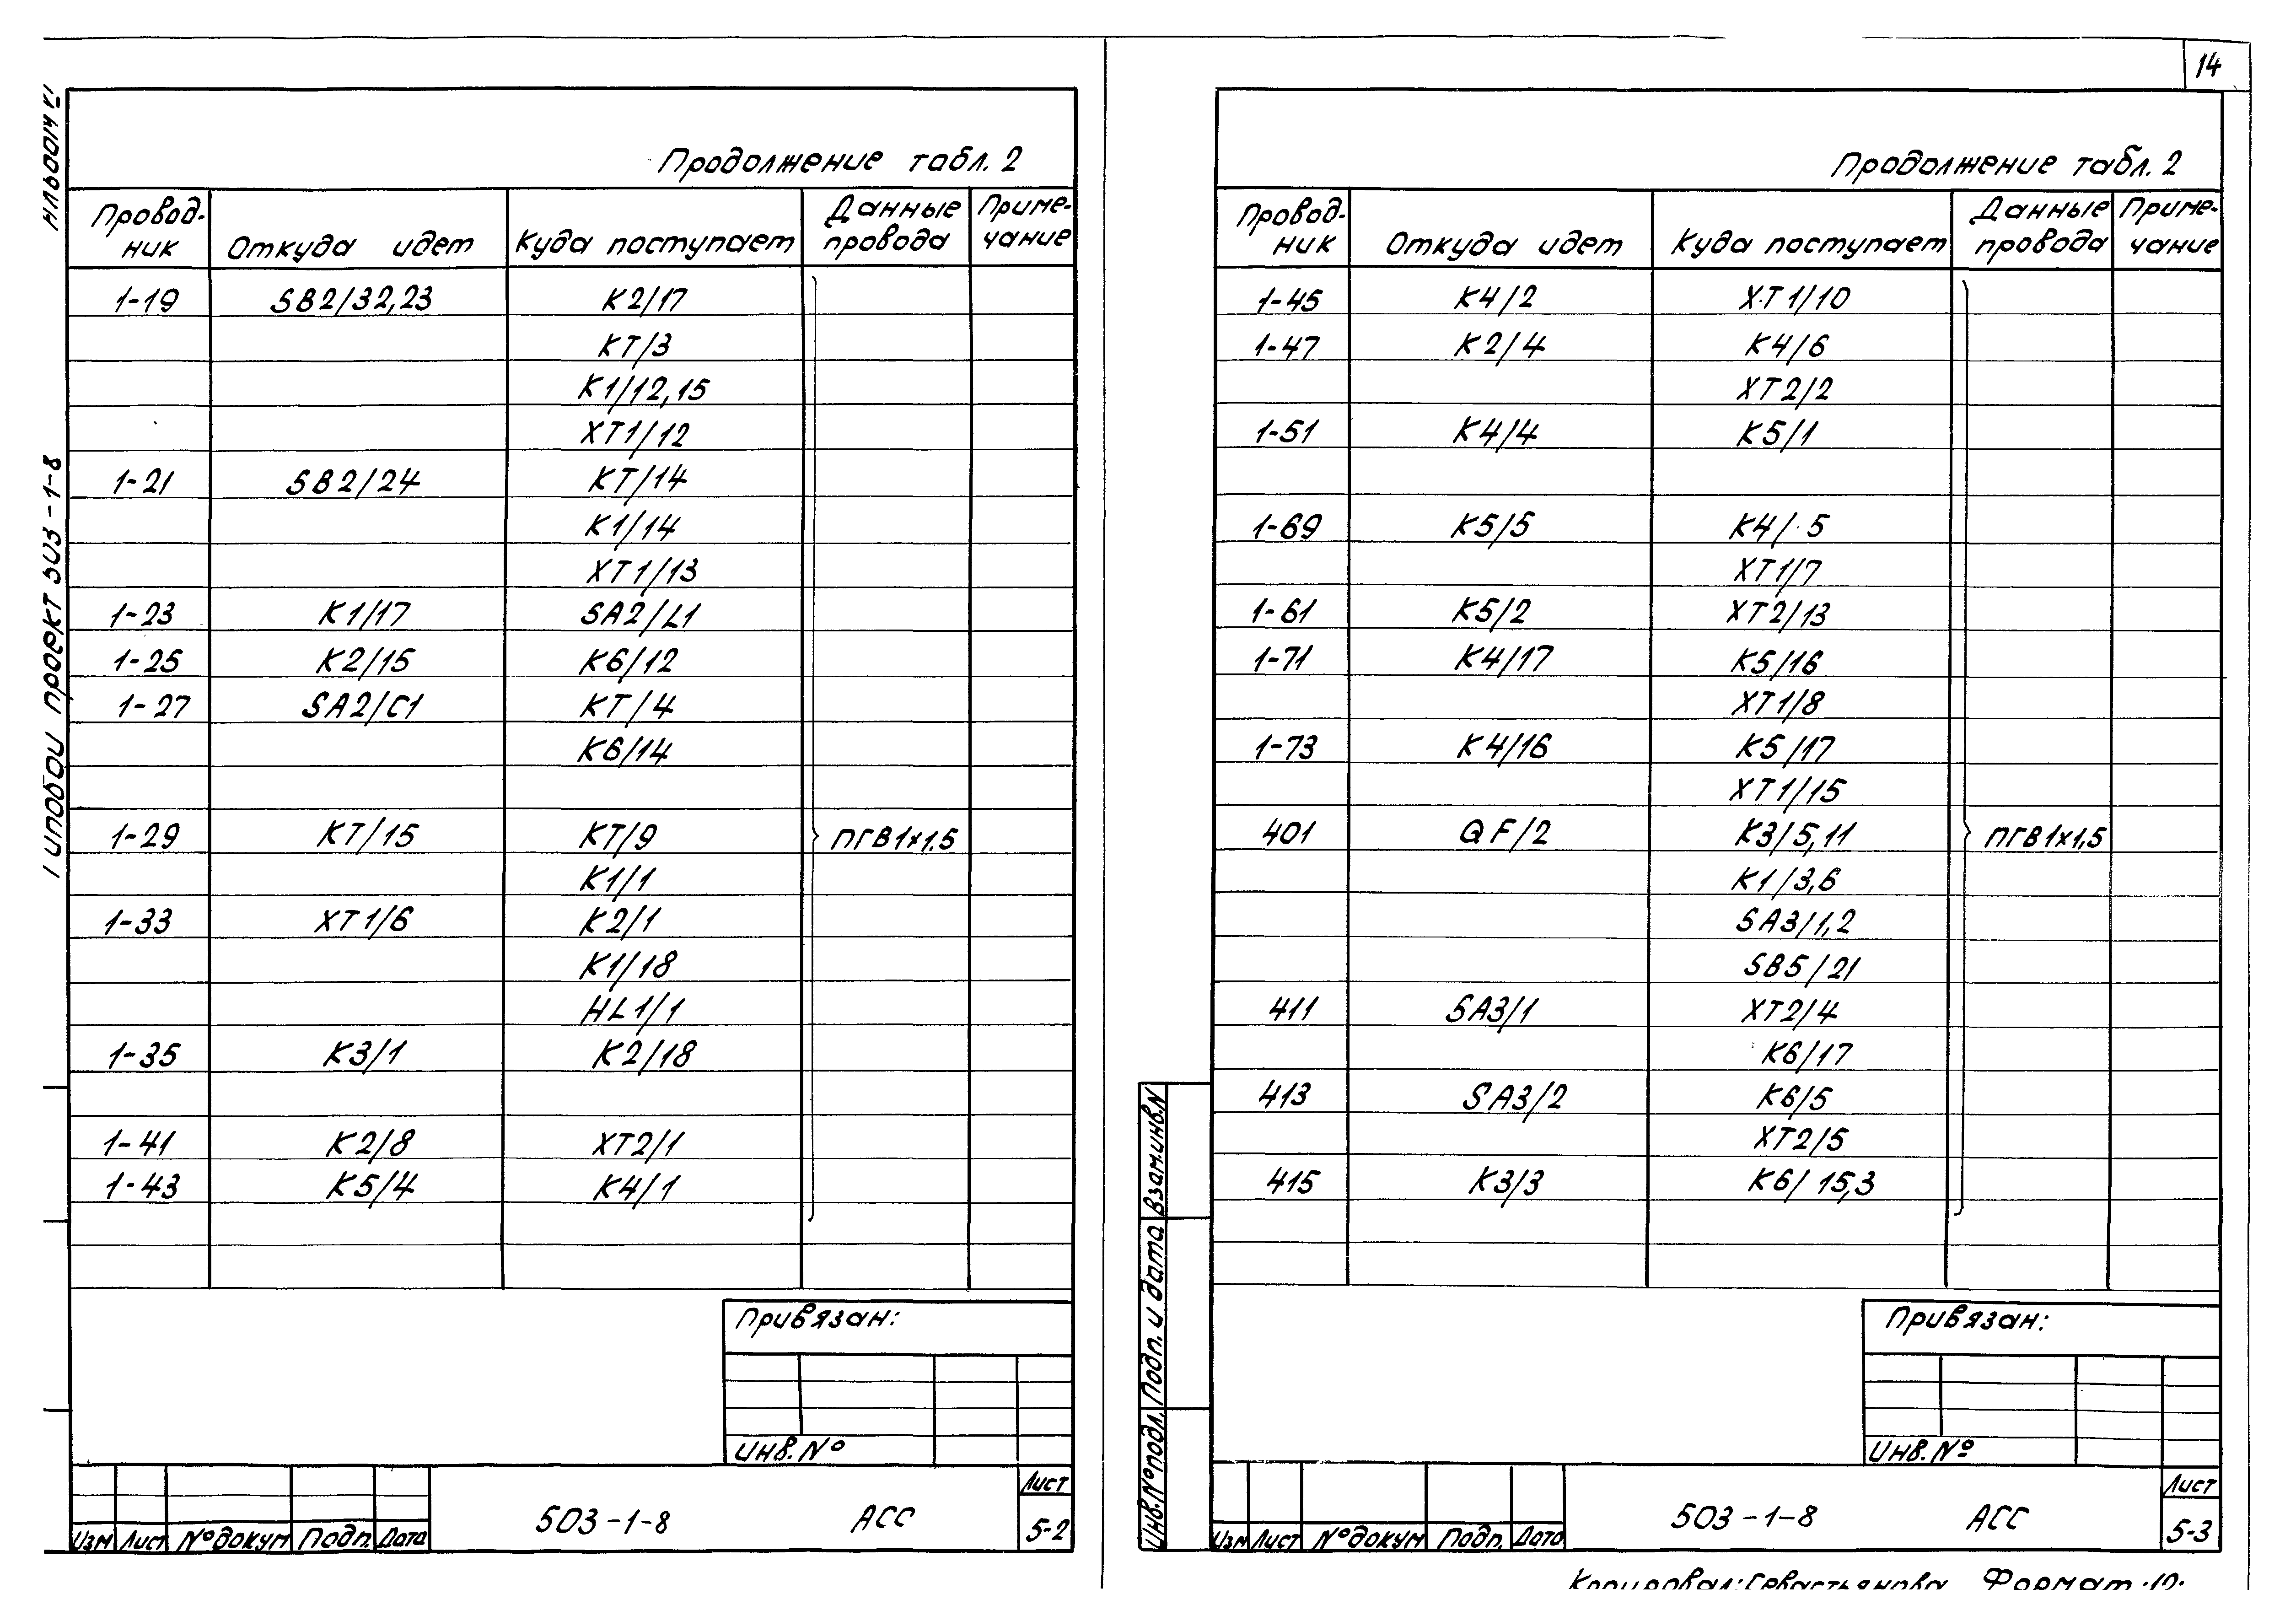 14
Альбом V
Типовой проект 503-1-8
Продолжение табл. 2
Провод-ник Откуда идет Куда поступает Данные провода Приме-чание
1-19 SB2/32,23 K2/17
KT/3
K1/12,15
XT1/12
1-21 SB2/24 KT/14
K1/14
XT1/13
1-23 K1/17 SA2/L1
1-25 K2/15 K6/12
1-27 SA2/C1 KT/4
K6/14
1-29 KT/15 KT/9 ПГВ1×1,5
K1/1
1-33 XT1/6 K2/1
K1/18
HL1/1
1-35 K3/1 K2/18
1-41 K2/8 XT2/1
1-43 K5/4 K4/1
Привязан:
Инв.№
Изм Лист №докум Подп. Дата
503-1-8 АСС
Лист
5-2
Продолжение табл. 2
Провод-ник Откуда идет Куда поступает Данные провода Приме-чание
1-45 K4/2 XT1/10
1-47 K2/4 K4/6
XT2/2
1-51 K4/4 K5/1
1-69 K5/5 K4/5
XT1/7
1-61 K5/2 XT2/13
1-71 K4/17 K5/16
XT1/8
1-73 K4/16 K5/17
XT1/15
401 QF/2 K3/5,11 ПГВ1×1,5
K1/3,6
SA3/1,2
SB5/21
411 SA3/1 XT2/4
K6/17
413 SA3/2 K6/5
XT2/5
415 K3/3 K6/15,3
Взам.инв.N
Подп. и дата
Инв.№подл.
Привязан:
Инв.№
Изм Лист №докум Подп. Дата
503-1-8 АСС
Лист
5-3
Копировал: Севастьянова Формат 12